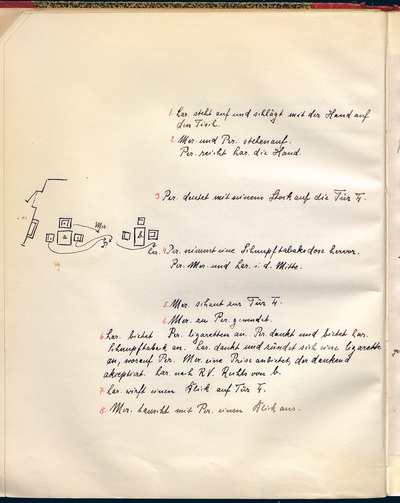 1. Lar. steht auf und schlägt mit der Hand auf
den Tisch.
2. Mor. und Per. stehen auf.
Per. reicht Lar. die Hand.
3. Per. deutet mit seinem Stock auf die Tür
Mor.
Lar.
4. Per. nimmt eine Schnupftabaksdose hervor.
Per. Mor. und Lar. i. d. Mitte.
5. Mor. schaut zur Tür
6. Mor. zu Per. gewendet.
6. Lar. bietet Per. Zigaretten an. Per. dankt und bietet Lar.
Schnupftabak an. Lar. dankt und zündet sich eine Zigarette
an, worauf Per. Mor. eine Prise anbietet, der dankend
akzeptiert. Lar. nach R.V. Rechts von b.
7. Lar. wirft einen Blick auf Tür
8. Mor. tauscht mit Per. einen Blick aus.